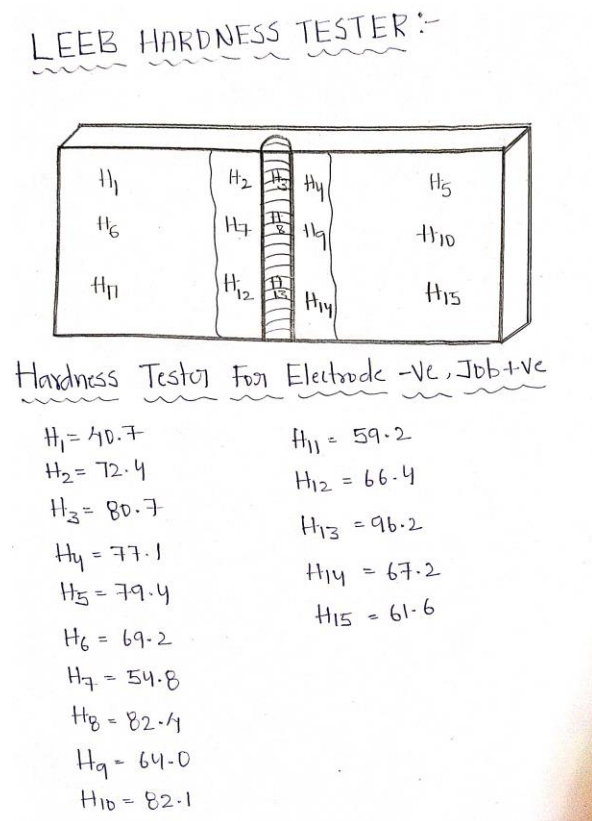 LEEB HARDNESS TESTER :-
H1 H2 H3 H4 H5
H6 H7 H8 H9 H10
H11 H12 H13 H14 H15
Hardness Tester For Electrode -Ve, Job+Ve
H1 = 40.7
H2 = 72.4
H3 = 80.7
H4 = 77.1
H5 = 79.4
H6 = 69.2
H7 = 54.8
H8 = 82.4
H9 = 64.0
H10 = 82.1
H11 = 59.2
H12 = 66.4
H13 = 96.2
H14 = 67.2
H15 = 61.6